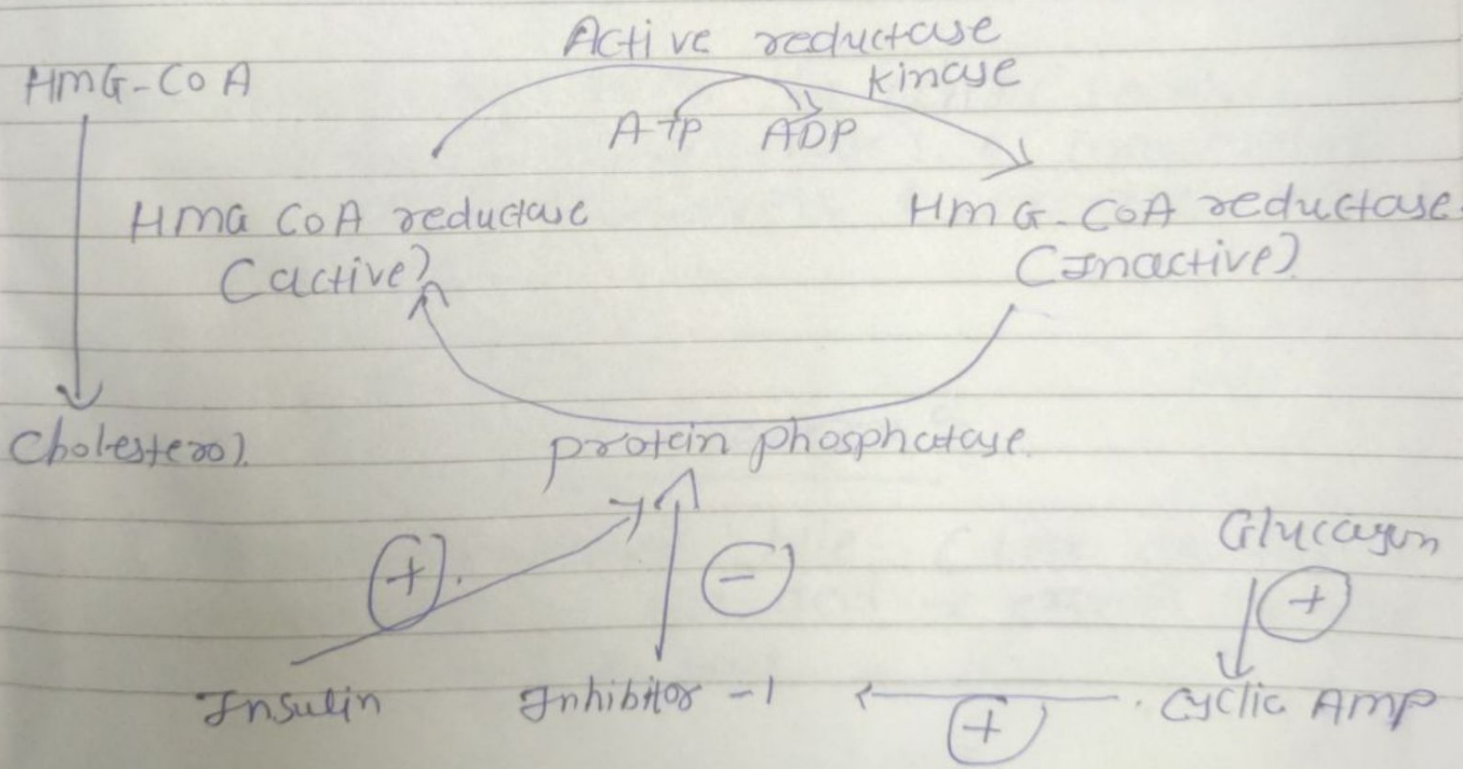 Active reductase
HMG-COA
kinase
ATP ADP
HMG COA reductase
HMG-COA reductase
(active)
(Inactive)
Cholesterol.
protein phosphatase.
Glucagon
+
-
+
Insulin Inhibitor -1 Cyclic AMP
+